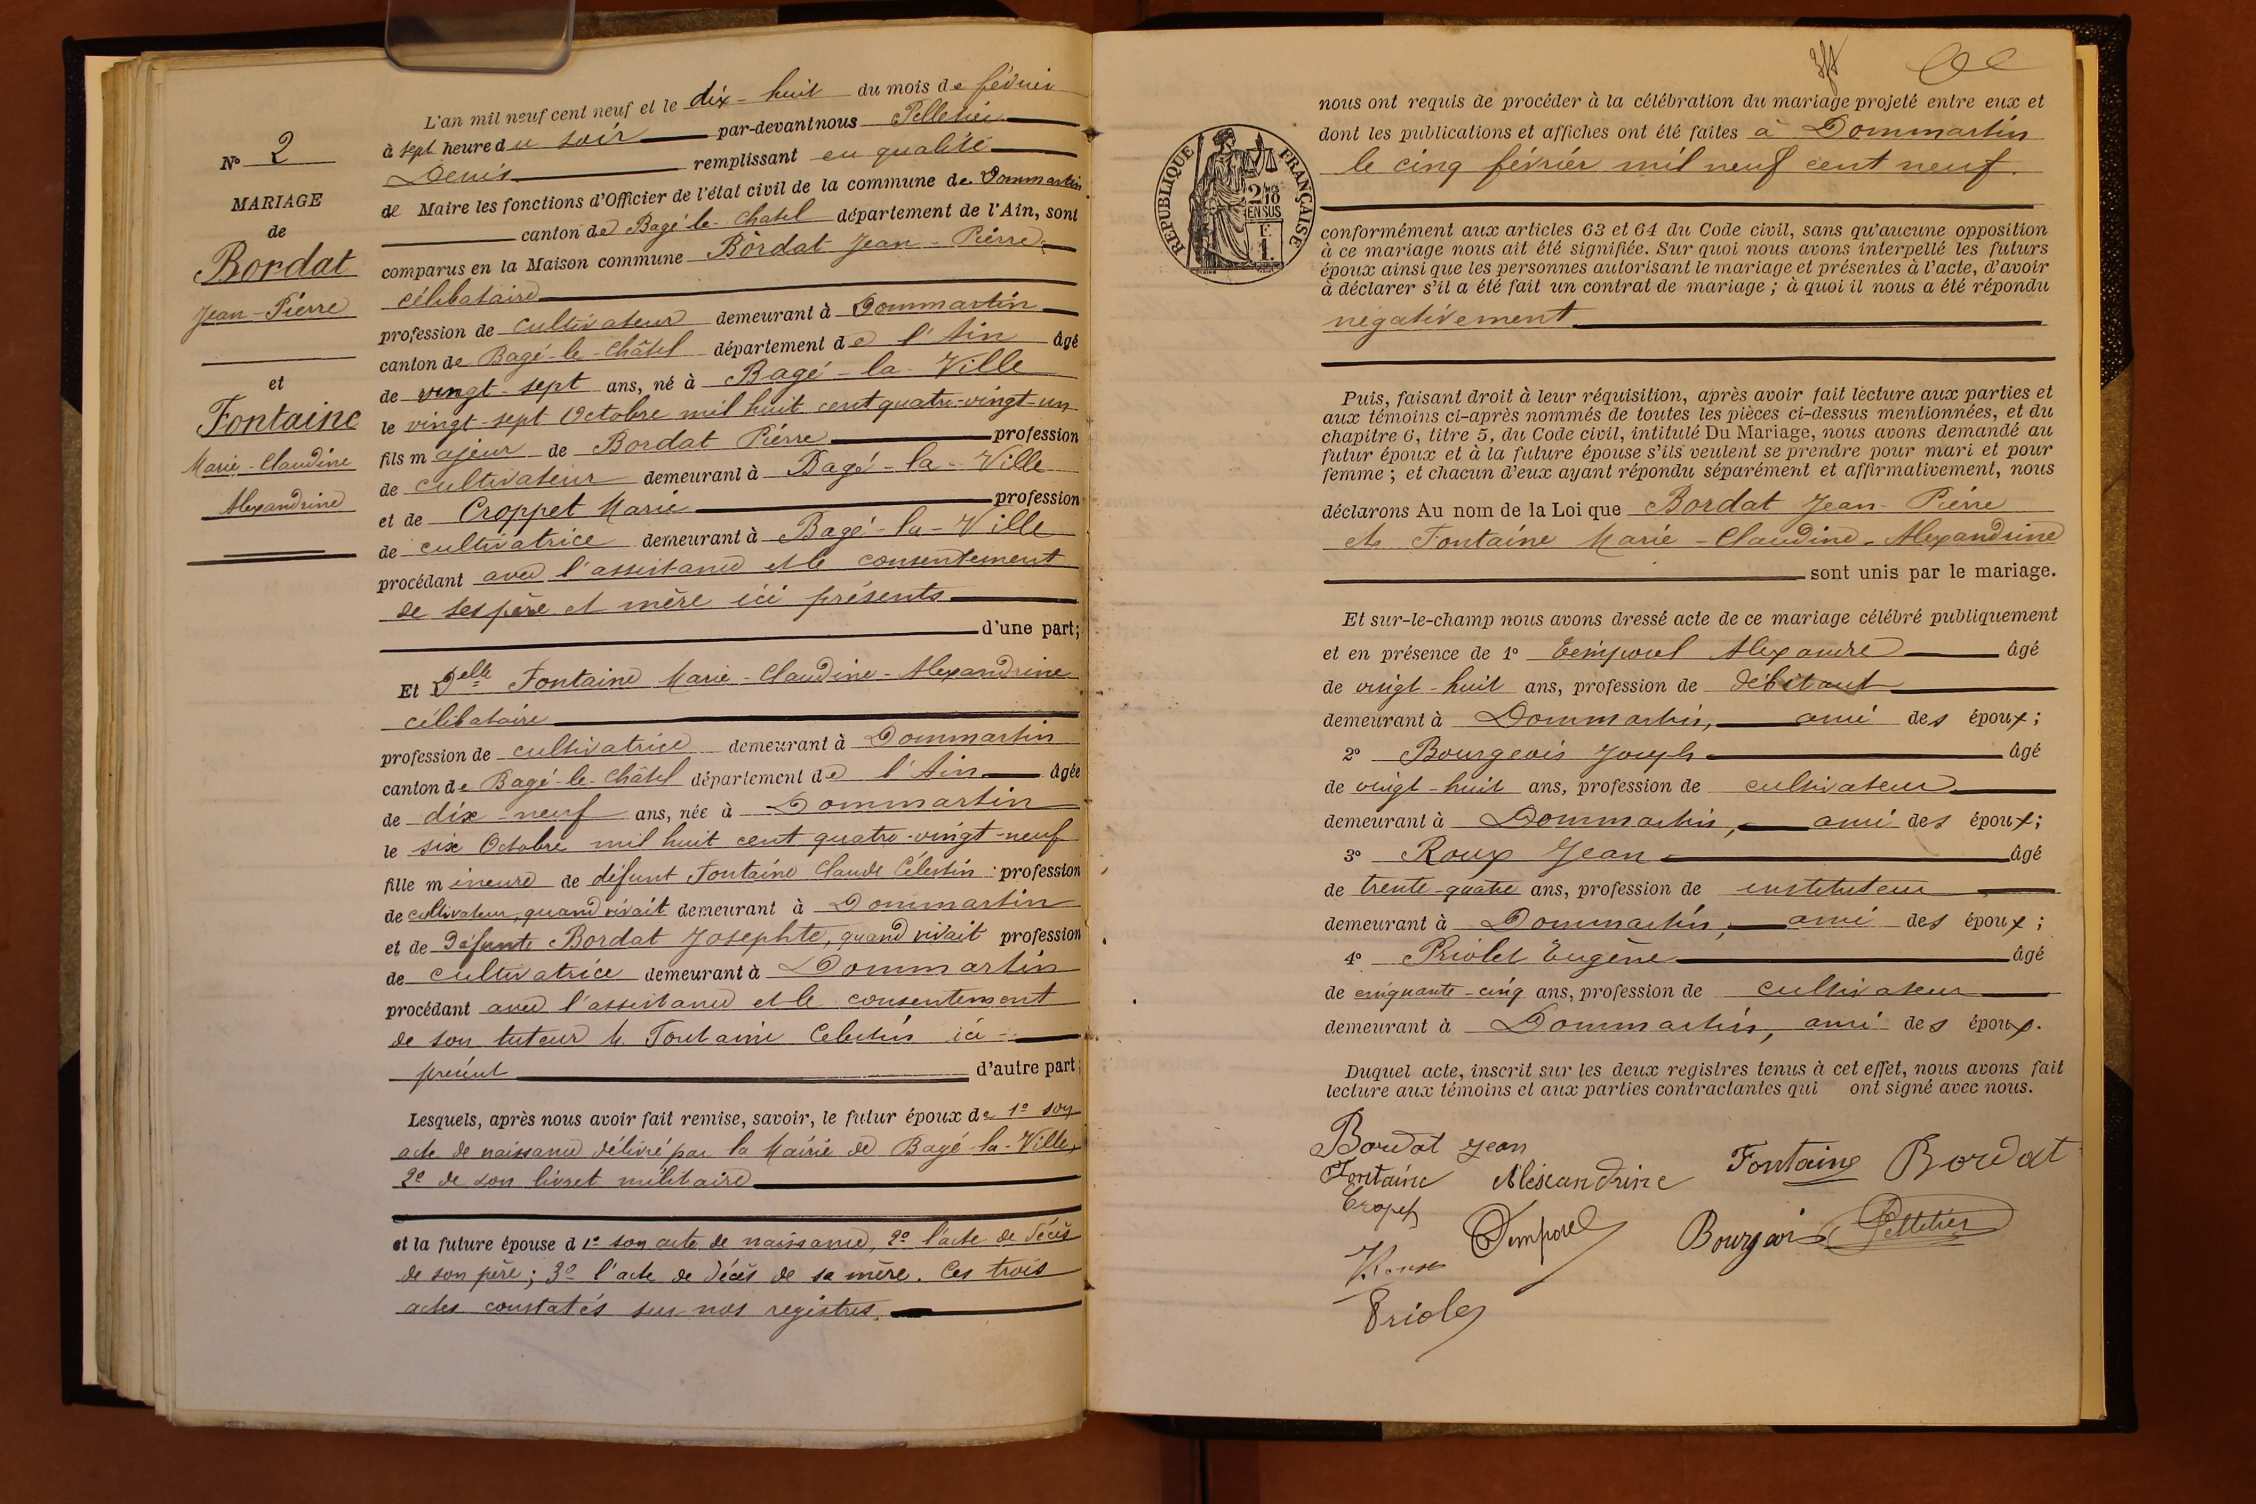 N° 2
MARIAGE
de
Bordat
Jean-Pierre
et
Fontaine
Marie-Claudine
Alexandrine
L'an mil neuf cent neuf et le dix-huit du mois de février
à sept heure du soir par-devant nous Pelletier
Denis remplissant en qualité
de Maire les fonctions d'Officier de l'état civil de la commune de Dommartin
canton de Bagé-le-Chatel département de l'Ain, sont
comparus en la Maison commune Bordat Jean-Pierre,
célibataire
profession de cultivateur demeurant à Dommartin
canton de Bagé-le-Châtel département de l'Ain âgé
de vingt-sept ans, né à Bagé-la-Ville
le vingt-sept Octobre mil huit cent quatre-vingt-un
fils majeur de Bordat Pierre profession
de cultivateur demeurant à Bagé-la-Ville
et de Croppet Marie profession
de cultivatrice demeurant à Bagé-la-Ville
procédant avec l'assistance et le consentement
de ses père et mère ici présents
d'une part;
Et Delle Fontaine Marie-Claudine-Alexandrine
célibataire
profession de cultivatrice demeurant à Dommartin
canton de Bagé-le-Châtel département de l'Ain âgée
de dix-neuf ans, née à Dommartin
le six Octobre mil huit cent quatre-vingt-neuf
fille mineure de défunt Fontaine Claude Célestin profession
de cultivateur, quand vivait demeurant à Dommartin
et de défunte Bordat Josephte, quand vivait profession
de cultivatrice demeurant à Dommartin
procédant avec l'assistance et le consentement
de son tuteur Mr Fontaine Celestin ici
présent d'autre part;
Lesquels, après nous avoir fait remise, savoir, le futur époux de 1° son
acte de naissance délivré par la Mairie de Bagé-la-Ville,
2° de son livret militaire
et la future épouse d 1° son acte de naissance, 2° l'acte de décès
de son père; 3° l'acte de décès de sa mère. Ces trois
actes constatés sur nos registres.
RÉPUBLIQUE FRANÇAISE
2/10
EN SUS
F.
1.
nous ont requis de procéder à la célébration du mariage projeté entre eux et
dont les publications et affiches ont été faites à Dommartin
le cinq février mil neuf cent neuf.
conformément aux articles 63 et 64 du Code civil, sans qu'aucune opposition
à ce mariage nous ait été signifiée. Sur quoi nous avons interpellé les futurs
époux ainsi que les personnes autorisant le mariage et présentes à l'acte, d'avoir
à déclarer s'il a été fait un contrat de mariage; à quoi il nous a été répondu
negativement
Puis, faisant droit à leur réquisition, après avoir fait lecture aux parties et
aux témoins ci-après nommés de toutes les pièces ci-dessus mentionnées, et du
chapitre 6, titre 5, du Code civil, intitulé Du Mariage, nous avons demandé au
futur époux et à la future épouse s'ils veulent se prendre pour mari et pour
femme; et chacun d'eux ayant répondu séparément et affirmativement, nous
déclarons Au nom de la Loi que Bordat Jean-Pierre
et Fontaine Marie-Claudine-Alexandrine
sont unis par le mariage.
Et sur-le-champ nous avons dressé acte de ce mariage célébré publiquement
et en présence de 1° Temporel Alexandre âgé
de vingt-huit ans, profession de débitant
demeurant à Dommartin, ami des époux;
2° Bourgeois Joseph âgé
de vingt-huit ans, profession de cultivateur
demeurant à Dommartin, ami des époux;
3° Roux Jean âgé
de trente-quatre ans, profession de instituteur
demeurant à Dommartin, ami des époux;
4° Priolet Eugène âgé
de cinquante-cinq ans, profession de cultivateur
demeurant à Dommartin, ami des époux.
Duquel acte, inscrit sur les deux registres tenus à cet effet, nous avons fait
lecture aux témoins et aux parties contractantes qui ont signé avec nous.
Bordat Jean
Fontaine Alexandrine Fontaine Bordat
Cropet
Temporel Bourgeois Pelletier
Roux
Priolet